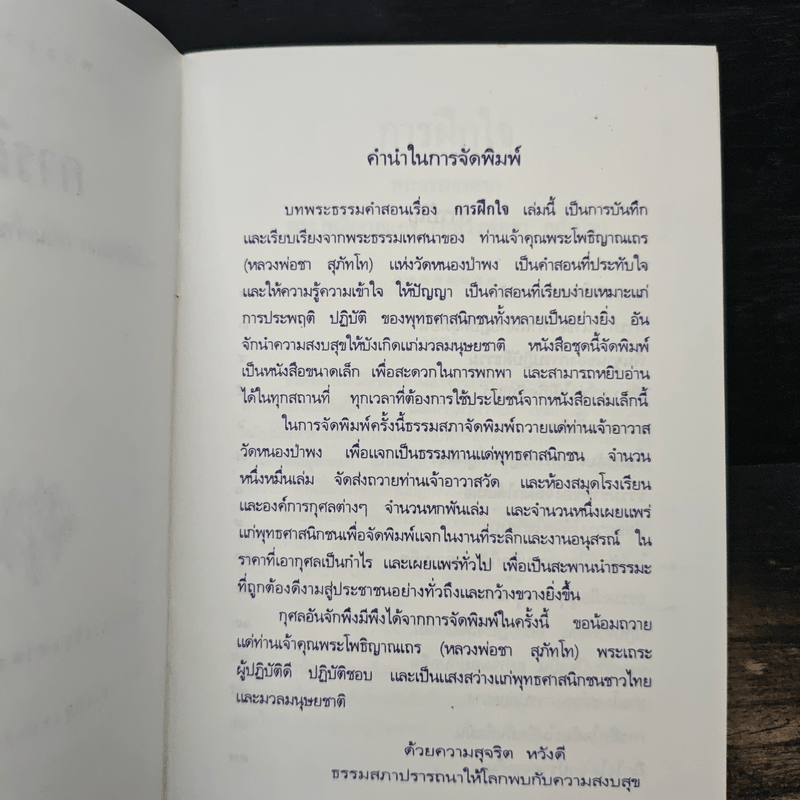 คำนำในการจัดพิมพ์
บทพระธรรมคำสอนเรื่อง การฝึกใจ เล่มนี้ เป็นการบันทึก
และเรียบเรียงจากพระธรรมเทศนาของ ท่านเจ้าคุณพระโพธิญาณเถร
(หลวงพ่อชา สุภัทโท) แห่งวัดหนองป่าพง เป็นคำสอนที่ประทับใจ
และให้ความรู้ความเข้าใจ ให้ปัญญา เป็นคำสอนที่เรียบง่ายเหมาะแก่
การประพฤติ ปฏิบัติ ของพุทธศาสนิกชนทั้งหลายเป็นอย่างยิ่ง อัน
จักนำความสงบสุขให้บังเกิดแก่มวลมนุษยชาติ หนังสือชุดนี้จัดพิมพ์
เป็นหนังสือขนาดเล็ก เพื่อสะดวกในการพกพา และสามารถหยิบอ่าน
ได้ในทุกสถานที่ ทุกเวลาที่ต้องการใช้ประโยชน์จากหนังสือเล่มเล็กนี้
ในการจัดพิมพ์ครั้งนี้ธรรมสภาจัดพิมพ์ถวายแด่ท่านเจ้าอาวาส
วัดหนองป่าพง เพื่อแจกเป็นธรรมทานแด่พุทธศาสนิกชน จำนวน
หนึ่งหมื่นเล่ม จัดส่งถวายท่านเจ้าอาวาสวัด และห้องสมุดโรงเรียน
และองค์การกุศลต่างๆ จำนวนหกพันเล่ม และจำนวนหนึ่งเผยแพร่
แก่พุทธศาสนิกชนเพื่อจัดพิมพ์แจกในงานที่ระลึกและงานอนุสรณ์ ใน
ราคาที่เอากุศลเป็นกำไร และเผยแพร่ทั่วไป เพื่อเป็นสะพานนำธรรมะ
ที่ถูกต้องดีงามสู่ประชาชนอย่างทั่วถึงและกว้างขวางยิ่งขึ้น
กุศลอันจักพึงมีพึงได้จากการจัดพิมพ์ในครั้งนี้ ขอน้อมถวาย
แด่ท่านเจ้าคุณพระโพธิญาณเถร (หลวงพ่อชา สุภัทโท) พระเถระ
ผู้ปฏิบัติดี ปฏิบัติชอบ และเป็นแสงสว่างแก่พุทธศาสนิกชนชาวไทย
และมวลมนุษยชาติ
ด้วยความสุจริต หวังดี
ธรรมสภาปรารถนาให้โลกพบกับความสงบสุข